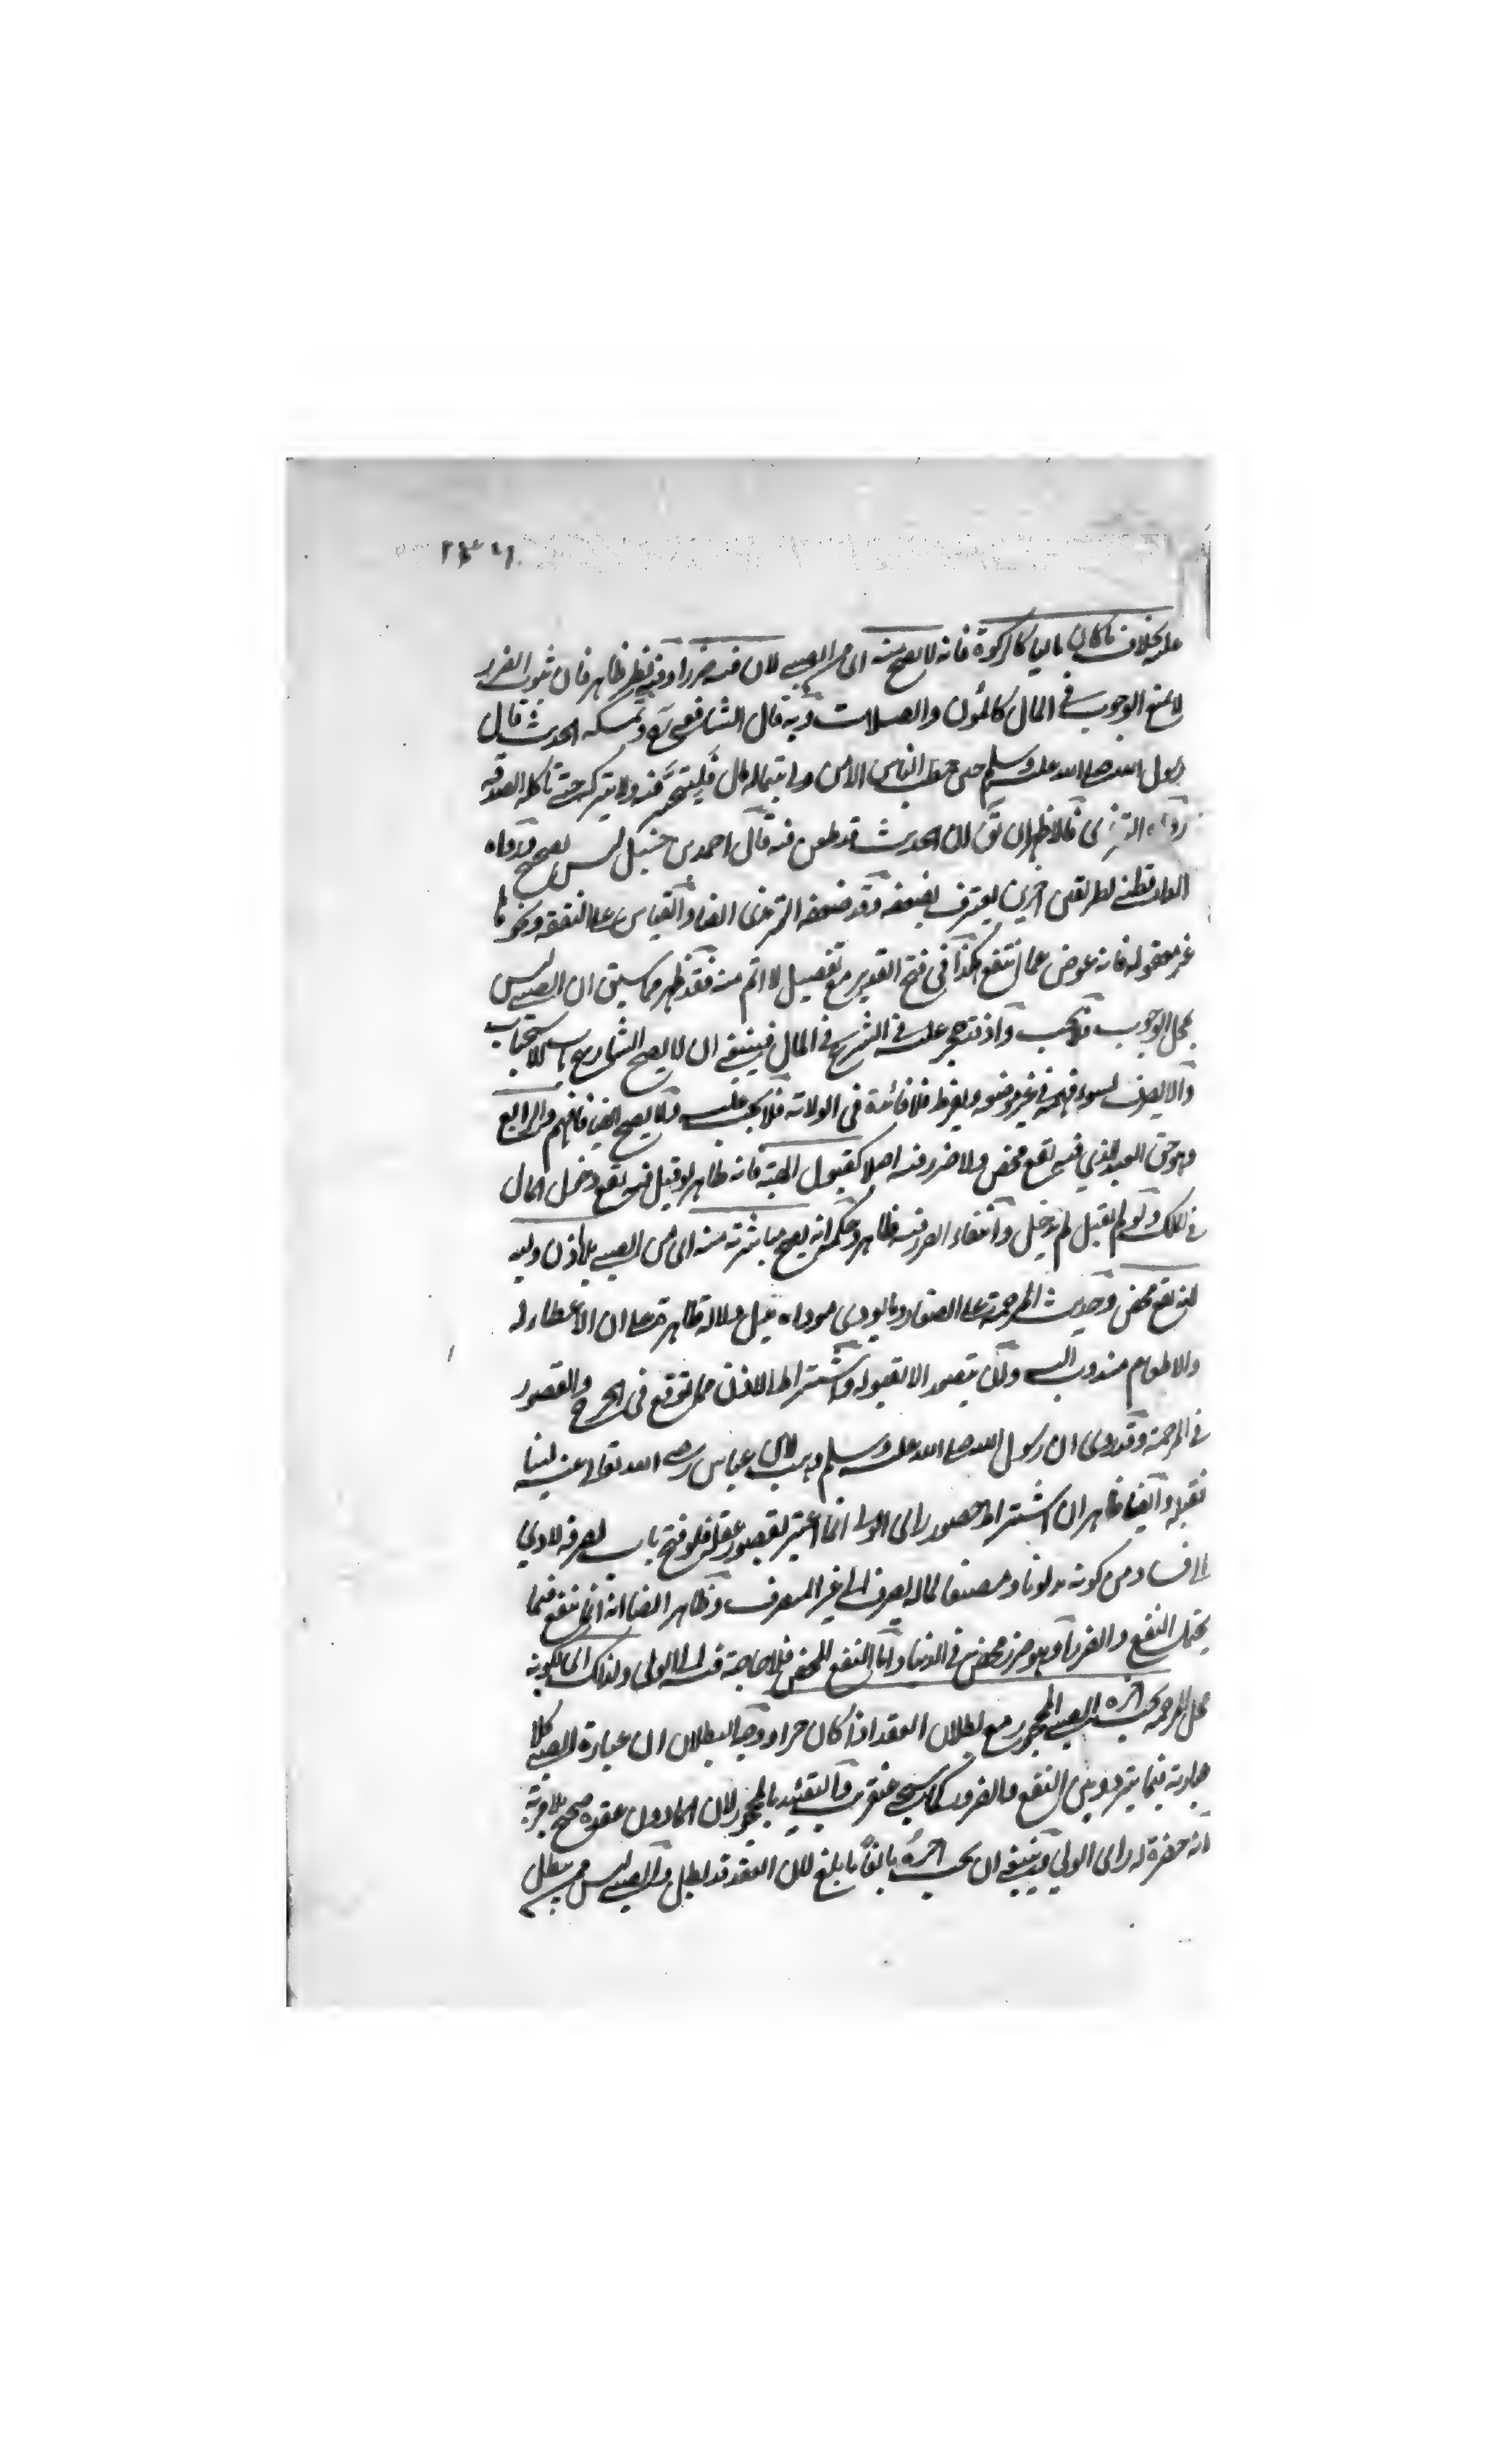 عليه بخلاف ما كان ماليا كالزكوة فانه لا يصح منه اى من الصبى لان فيه ضررا وفيه نظر ظاهر فان ثبوت الضرر
لا يمنع الوجوب فى المال كالمؤن والصلات وبه قال الشافعى رح وتمسكه الحديث قال
رسول الله صلى الله عليه وسلم حين خطب الناس الا من ولى يتيما له مال فليتجر فيه ولا يتركه حتى تاكله الصدقة
رواه الترمذى فالاظهر ان لان الحديث قد طعن فيه قال احمد بن حنبل ليس بصحيح ورواه
الدارقطنى بطريقين اخرين يعترف بضعفه وقد ضعفه الترمذى ايضا والقياس على النفقة ونحوها
غير معقول فانه عوض عما ينتفع هكذا فى فتح القدير مع تفصيل لا اتم منه فقد ظهر مما سبق ان الصبى ليس
بمحل الوجوب فلا يجب واذ قد حجر عليه فى الشرع فى المال فينبغى ان لا يصح الشارع باب الاستحباب
والا يصرف لسوء فهمه فى غير موضعه ويفرط فلا فائدة فى الولاية فلا يجب عليه ولا يصح ايضا فافهم والرابع
وهو حق العبد الذي فيه نفع محض ولا ضرر فيه اصلا كقبول الهبة فانه ظاهر لو قبل فيه نفع دخول المال
فى الملك ولو لم يقبل لم يدخل وانتفاء الضرر فيه ظاهر وحكمه انه يصح مباشرته منه اى من الصبى بلا اذن وليه
لانه نفع محض وحديث المرحمة على الصغار وما يودى موداه يدل دلالة ظاهرة على ان الاعطاء له
والاطعام مندوب اليه ولن يتصور الا بقبوله واشتراط الاذن مما توقع فى الحرج والقصور
فى المرحمة وقد روى ان رسول الله صلى الله عليه وسلم وهب لابن عباس رضى الله تعالى عنه لبنا
فقبله وايضا ظاهر ان اشتراط حضور راى الولى انما اعتبر لقصور عقله فلو فتح باب تصرفه لادى
الى فساد من كونه مديونا ومضيعا لماله يصرف الى غير المصرف وظاهر ايضا انه انما ينتفع فيما
يحتمل النفع والضرر او هو ضرر محض فى الدنيا واما النفع المحض فلا حاجة فيه الى الولى ولذلك اى لكونه
محل المرحمة يجب اجرة الصبى المحجور مع بطلان العقد اذا كان حرا ووجه البطلان ان عبارة الصبى كلا
عبارة فيما يتردد بين النفع والضرر كما سيجئ عنقريب والتقييد بالمحجور لان الماذون عقده صحيح بلا مرية
انه حضرة له راى الولى وينبغى ان يجب اجره بالغا ما بلغ لان العقد قد بطل والصبى ليس ممن يبطل